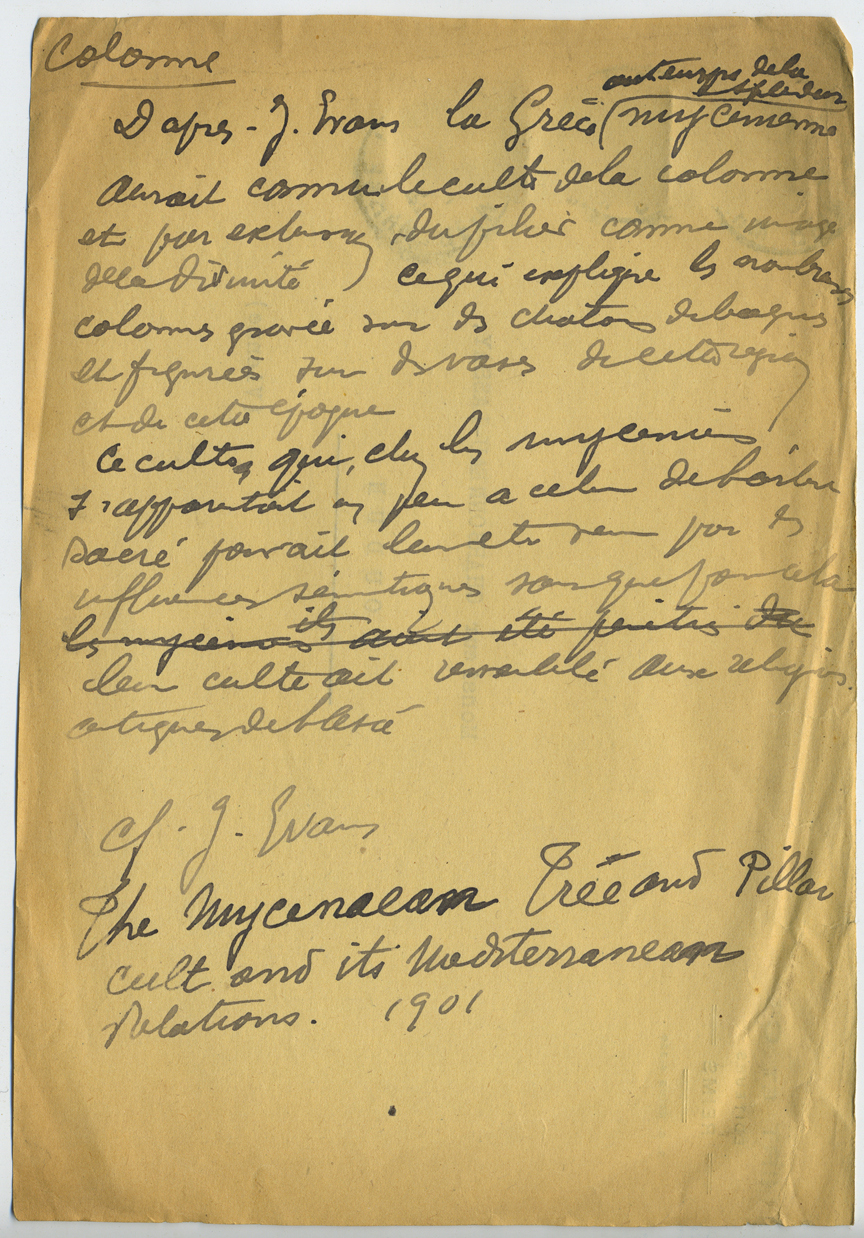 Colonne
au temps de la
splendeur
D'apres - J. Evans la Grèce (mycenienne
aurait connu le culte de la colonne
et par extension du pilier comme image
de la divinité) ce qui explique les nombreuses
colonnes gravées sur des chatons de bagues
et figurées sur des vases de cette region
et de cette époque
Ce culte, qui, chez les myceniens
s'apparentait un peu a celui de l'arbre
sacré pourrait leur etre venu par des
influences sémitiques sans que pour cela
ils
les myceniens aient été
leur culte ait ressemblé aux religions
antiques de l'asie
cf. J. Evans
The Mycenaean Tree and Pillar
cult and its Mediterranean
Relations. 1901